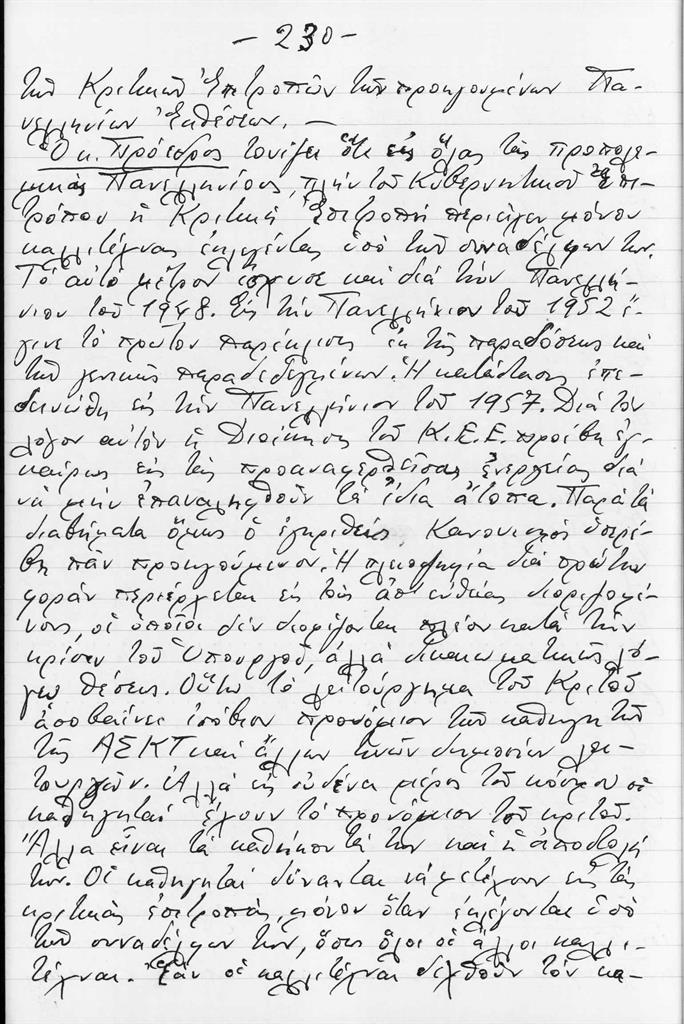 - 230 -
τῶν Κριτικῶν Ἐπιτροπῶν τῶν προηγουμένων Πα-
νελληνίων Ἐκθέσεων. —
Ὁ κ. Πρόεδρος τονίζει ὅτι εἰς ὅλας τὰς προπολε-
μικὰς Πανελληνίους, πλὴν τοῦ Κυβερνητικοῦ Ἐπι-
τρόπου ἡ Κριτικὴ Ἐπιτροπὴ περιεῖχεν μόνον
καλλιτέχνας ἐκλεγέντας ὑπὸ τῶν συναδέλφων των.
Τὸ αὐτὸ μέτρον ἴσχυσε καὶ διὰ τὴν Πανελλή-
νιον τοῦ 1948. Εἰς τὴν Πανελλήνιον τοῦ 1952 ἔ-
γινε τὸ πρῶτον παρέκκλισις ἐκ τῆς παραδόσεως καὶ
τῶν γενικῶς παραδεδεγμένων. Ἡ κατάστασις ἐπε-
δεινώθη εἰς τὴν Πανελλήνιον τοῦ 1957. Διὰ τὸν
λόγον αὐτὸν ἡ Διοίκησις τοῦ Κ.Ε.Ε. προέβη ἐγ-
καίρως εἰς τὰς προαναφερθείσας ἐνεργείας διὰ
νὰ μὴν ἐπαναληφθοῦν τὰ ἴδια ἄτοπα. Παρὰ τὰ
διαβήματα ὅμως ὁ ἐγκριθεὶς Κανονισμὸς ὑπερέ-
βη πᾶν προηγούμενον. Ἡ πλειοψηφία διὰ πρώτην
φορὰν περιέρχεται εἰς τοὺς ἀπ' εὐθείας διοριζομέ-
νους, οἱ ὁποῖοι δὲν διορίζονται πλέον κατὰ τὴν
κρίσιν τοῦ Ὑπουργοῦ, ἀλλὰ δικαιωματικῶς λό-
γῳ θέσεως. Οὕτω τὸ λειτούργημα τοῦ Κριτοῦ
ἀποβαίνει ἰσόβιον προνόμιον τῶν καθηγητῶν
τῆς ΑΣΚΤ καὶ ἄλλων τινῶν δημοσίων λει-
τουργῶν. Ἀλλὰ εἰς οὐδένα μέρος τοῦ κόσμου οἱ
καθηγηταὶ ἔχουν τὸ προνόμιον τοῦ κριτοῦ.
Ἄλλα εἶναι τὰ καθήκοντά των καὶ ἡ ἀποστολή
των. Οἱ καθηγηταὶ δύνανται νὰ μετέχουν εἰς τὰς
κριτικὰς ἐπιτροπάς, μόνον ὅταν ἐκλέγονται ὑπὸ
τῶν συναδέλφων των, ὅπως ὅλοι οἱ ἄλλοι καλλι-
τέχναι. Ἐὰν οἱ καλλιτέχναι δεχθοῦν τὸν κα-